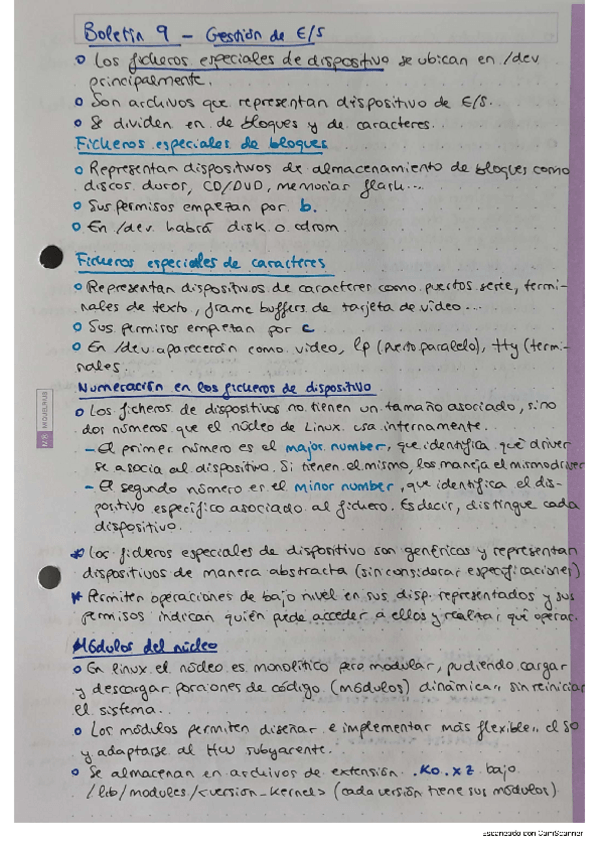 Boletín 9 - Gestión de E/S
Los ficheros especiales de dispositivo se ubican en /dev
principalmente.
Son archivos que representan dispositivo de E/S.
Se dividen en de bloques y de caracteres.
Ficheros especiales de bloques
Representan dispositivos de almacenamiento de bloques como
discos duros, CD/DVD, memorias flash...
Sus permisos empezan por b.
En /dev habrá disk o cdrom
Ficheros especiales de caracteres
Representan dispositivos de caracteres como puertos serie, termi-
nales de texto, frame buffers de tarjeta de video...
Sus permisos empezan por c
En /dev aparecerán como video, lp (puerto paralelo), tty (termi-
nales
Numeración en los ficheros de dispositivo
Los ficheros de dispositivos no tienen un tamaño asociado, sino
dos números que el núcleo de Linux usa internamente.
- El primer número es el major number, que identifica qué driver
se asocia al dispositivo. Si tienen el mismo, los maneja el mismo driver
- El segundo número es el minor number, que identifica el dis-
positivo específico asociado al fichero. Es decir, distingue cada
dispositivo.
* Los ficheros especiales de dispositivo son genéricos y representan
dispositivos de manera abstracta (sin considerar especificaciones)
* Permiten operaciones de bajo nivel en sus disp. representados y sus
permisos indican quién puede acceder a ellos y realizar qué operac.
Módulos del núcleo
En linux el núcleo es monolítico pero modular, pudiendo cargar
y descargar porciones de código (módulos) dinámica,, sin reiniciar
el sistema.
Los módulos permiten diseñar e implementar más flexible,, el SO
y adaptarse al HW subyacente.
Se almacenan en archivos de extensión .ko.xz bajo
/lib/modules/<version_kernel> (cada versión tiene sus módulos)
Nº8 MIQUELRIUS
Escaneado con CamScanner